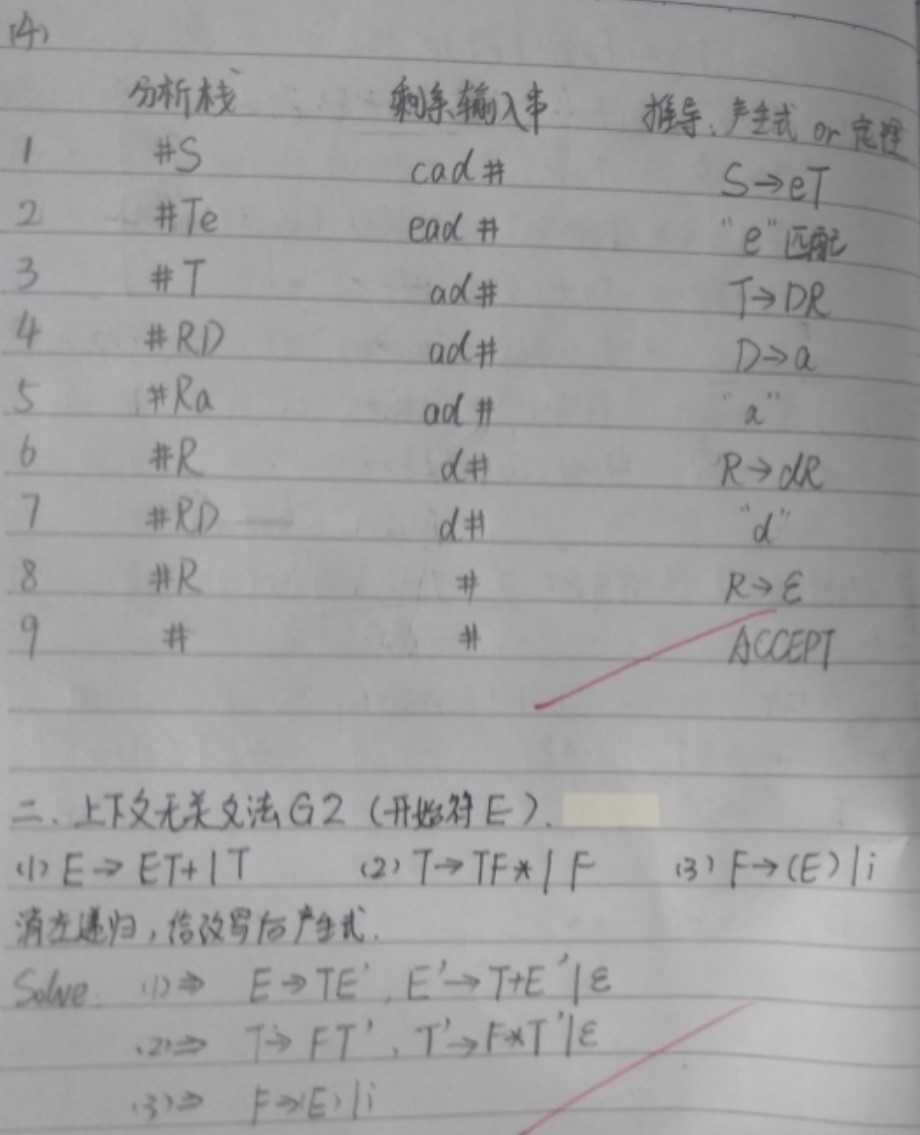 (4)
分析栈 剩余输入串 推导、产生式 or 定理
1 #S cad# S→eT
2 #Te ead# "e"匹配
3 #T ad# T→DR
4 #RD ad# D→a
5 #Ra ad# "a"
6 #R d# R→dR
7 #RD d# "d"
8 #R # R→ε
9 # # ACCEPT
二、上下文无关文法G2(开始符E).
(1) E→ET+|T (2) T→TF*|F (3) F→(E)|i
消左递归,给改写后产生式.
Solve. (1)⇒ E→TE', E'→T+E'|ε
(2)⇒ T→FT', T'→F*T'|ε
(3)⇒ F→(E)|i